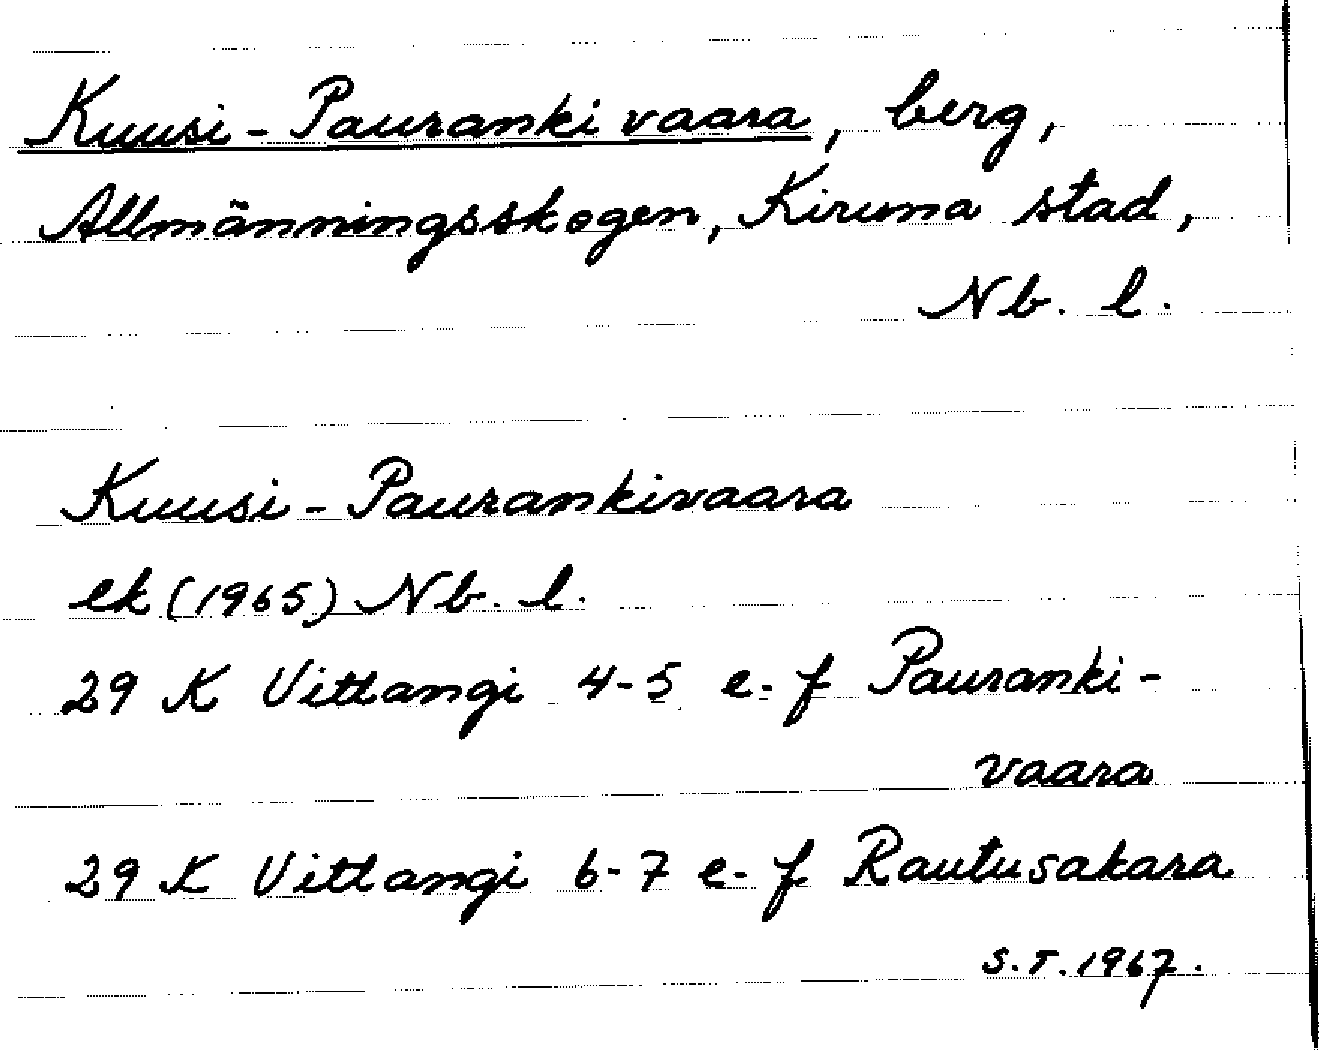 Kuusi-Paurankivaara, berg,
Allmänningsskogen, Kiruna stad,
Nb. l.
Kuusi-Paurankivaara
ek (1965) Nb. l.
29 K Vittangi 4-5 e-f Pauranki-
vaara
29 K Vittangi 6-7 e-f Rautusakara
S.T. 1967.